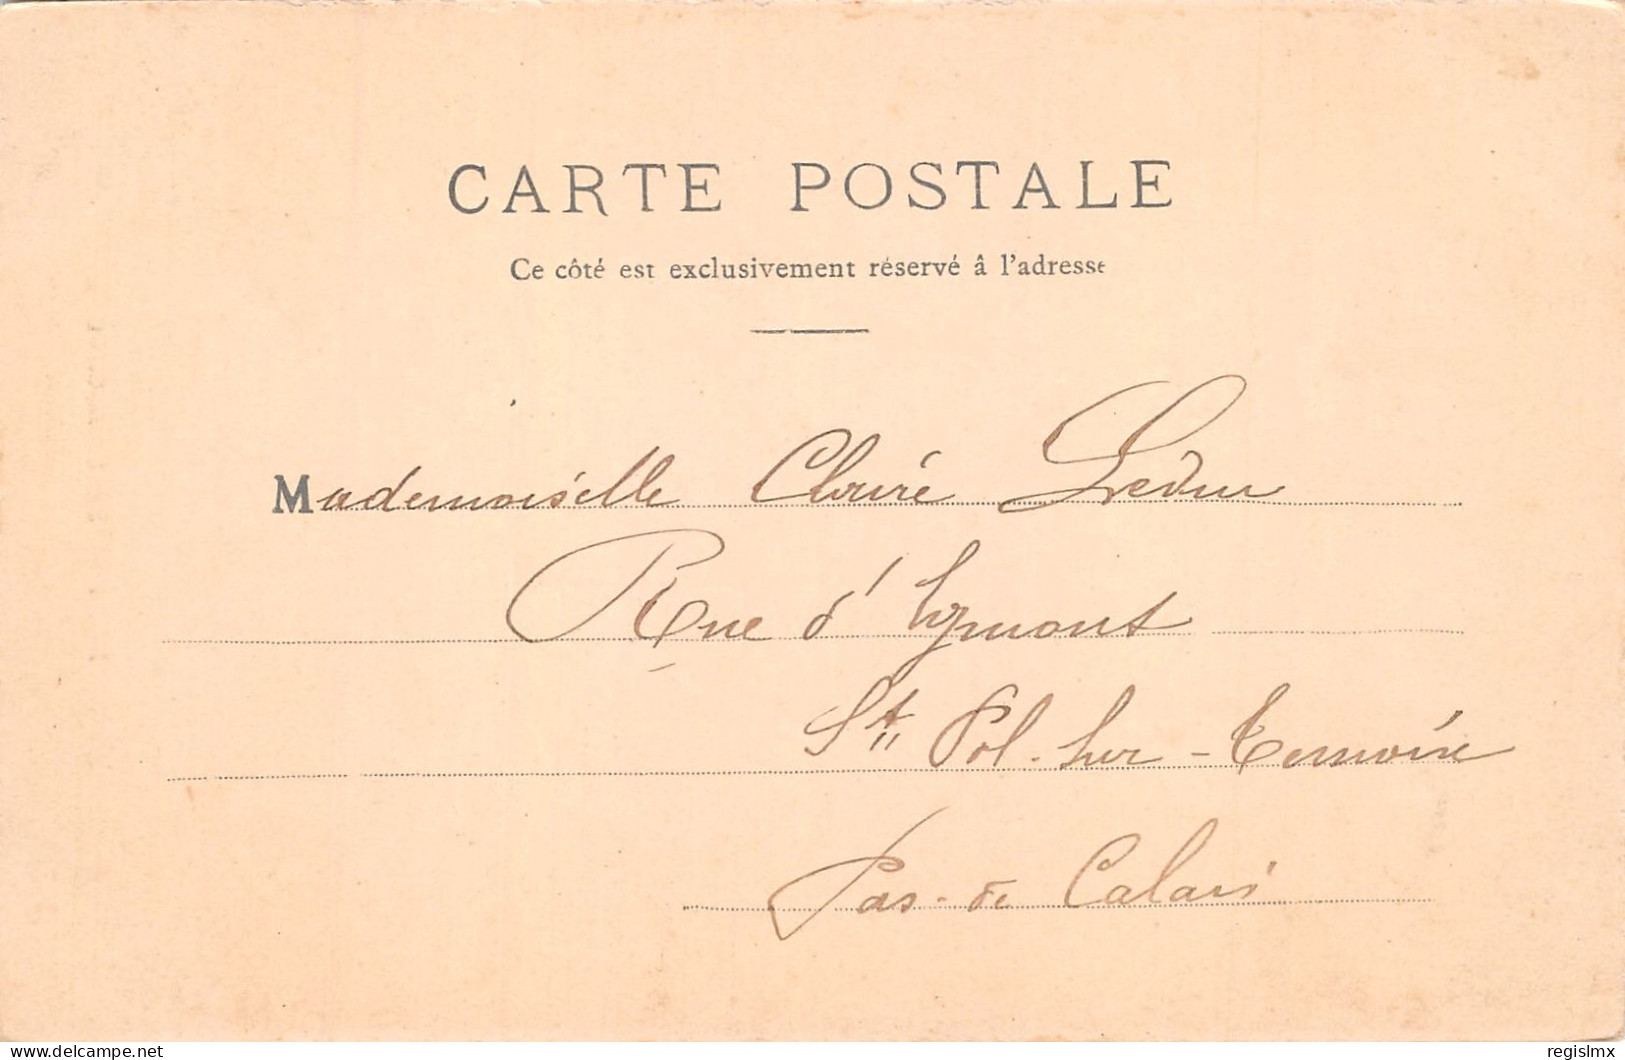 CARTE POSTALE
Ce côté est exclusivement réservé â l'adresse
Mademoiselle Claire Leduc
Rue d'Egmont
St Pol-sur-Ternoise
Pas-de Calais
delcampe.net
regislmx